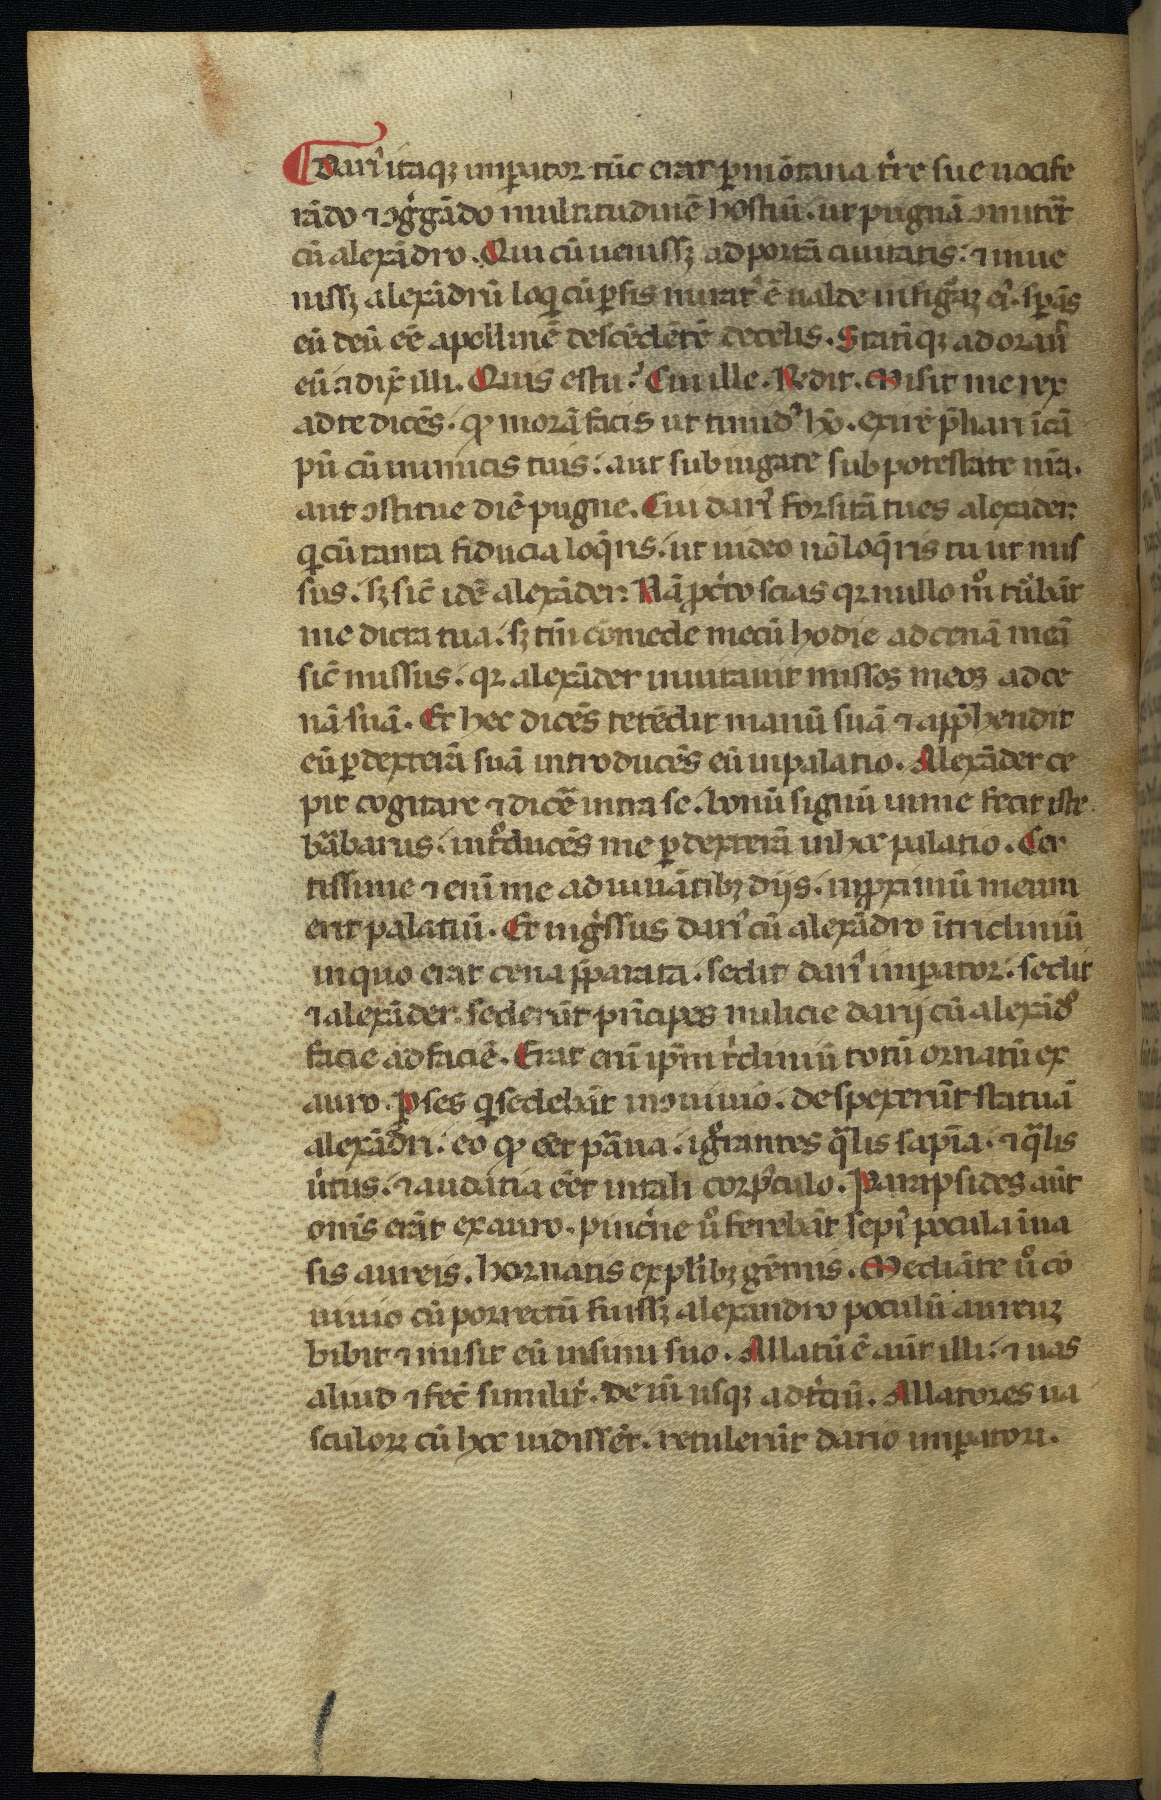 Dari᷒ itaqꝫ imꝑator tūc erat ꝑ mōtana t̄re sue uocife
rādo ⁊ ↄg̊gādo multitudinē hostiū. ut pugnā ↄmitt̄et
cū alexādro. Qui cū uenissꝫ ad portā ciuitatis. ⁊ inue
nissꝫ alexādrū loq̄ cū ꝑsis mirat᷒ ē ualde in figᷓꝫ ei᷒. sꝑās
eū deū eē apollinē descēdētē de celis. Statīqꝫ adorauit
eū. ⁊ dix̄ illi. Quis es tu? Cui ille. Rñdit. Misit me rex
ad te dicēs. qđ morā facis ut timid᷒ hō. exire p̄liari ī cā
pū cū inimicis tuis. aut subiugare sub potestate n̄ra.
aut ↄstitue diē pugne. Cui dari᷒ forsitā tu es alexāder.
q̄ cū tanta fiducia loq̄ris. ut uideo nō loq̄ris tu ut mis
sus. sꝫ sic̄ idē alexāder. Nā ꝓcto scias qꝛ nullo mͦ tūbāt
me dicta tua. sꝫ tn̄ cōmede mecū hodie ad cenā meā
sic̄ missus. qꝛ alexāder inuitauit missos meos ad ce
nā suā. Et hec dicēs tetēdit manū suā ⁊ app̄hendit
eū ꝑ dexterā suā introducēs eū in palatio. Alexāder ce
pit cogitare ⁊ dic̄e intra se. bonū signū in me fecit iste
barbarus. int̊ducēs me ꝑ dexterā in hoc palatio. Cer
tissime ⁊ enī me adiuuātibꝫ dijs. in ꝓximū meum
erit palatiū. Et ing̊ssus dari᷒ cū alexādro ī tricliniū
in quo erat cena p̄parata. sedit dari᷒ imꝑator. sedit
⁊ alexāder. sederūt pricipes milicie darij cū alexādͦ
facie ad faciē. Erat enī ip̄m t̊cliniū totū ornatū ex
auro. Pses q̄ sedebāt in ↄuiuio. despexerūt statuā
alexādri. eo qđ eēt parua. ig̊rantes q̄lis sapīa. ⁊ q̄lis
uirtus. ⁊ audatia eēt in tali corꝑculo. Parapsides aūt
om̄s erāt ex auro. pinc̄ne uͦ ferebāt sepi᷒ pocula ī ua
sis aureis. hornatis ex plībꝫ gēmis. Mediāte uͦ cō
uiuio cū porrectū fuissꝫ alexandro poculū aureuꝫ
bibit ⁊ misit eū in sinu suo. Allatū ē aūt illi. ⁊ uas
aliud ⁊ fec̄ similit᷒. de īn usqꝫ ad t̊ciū. Allatores ua
sculorꝝ cū hoc uidissēt. retulerūt dario imꝑatori.